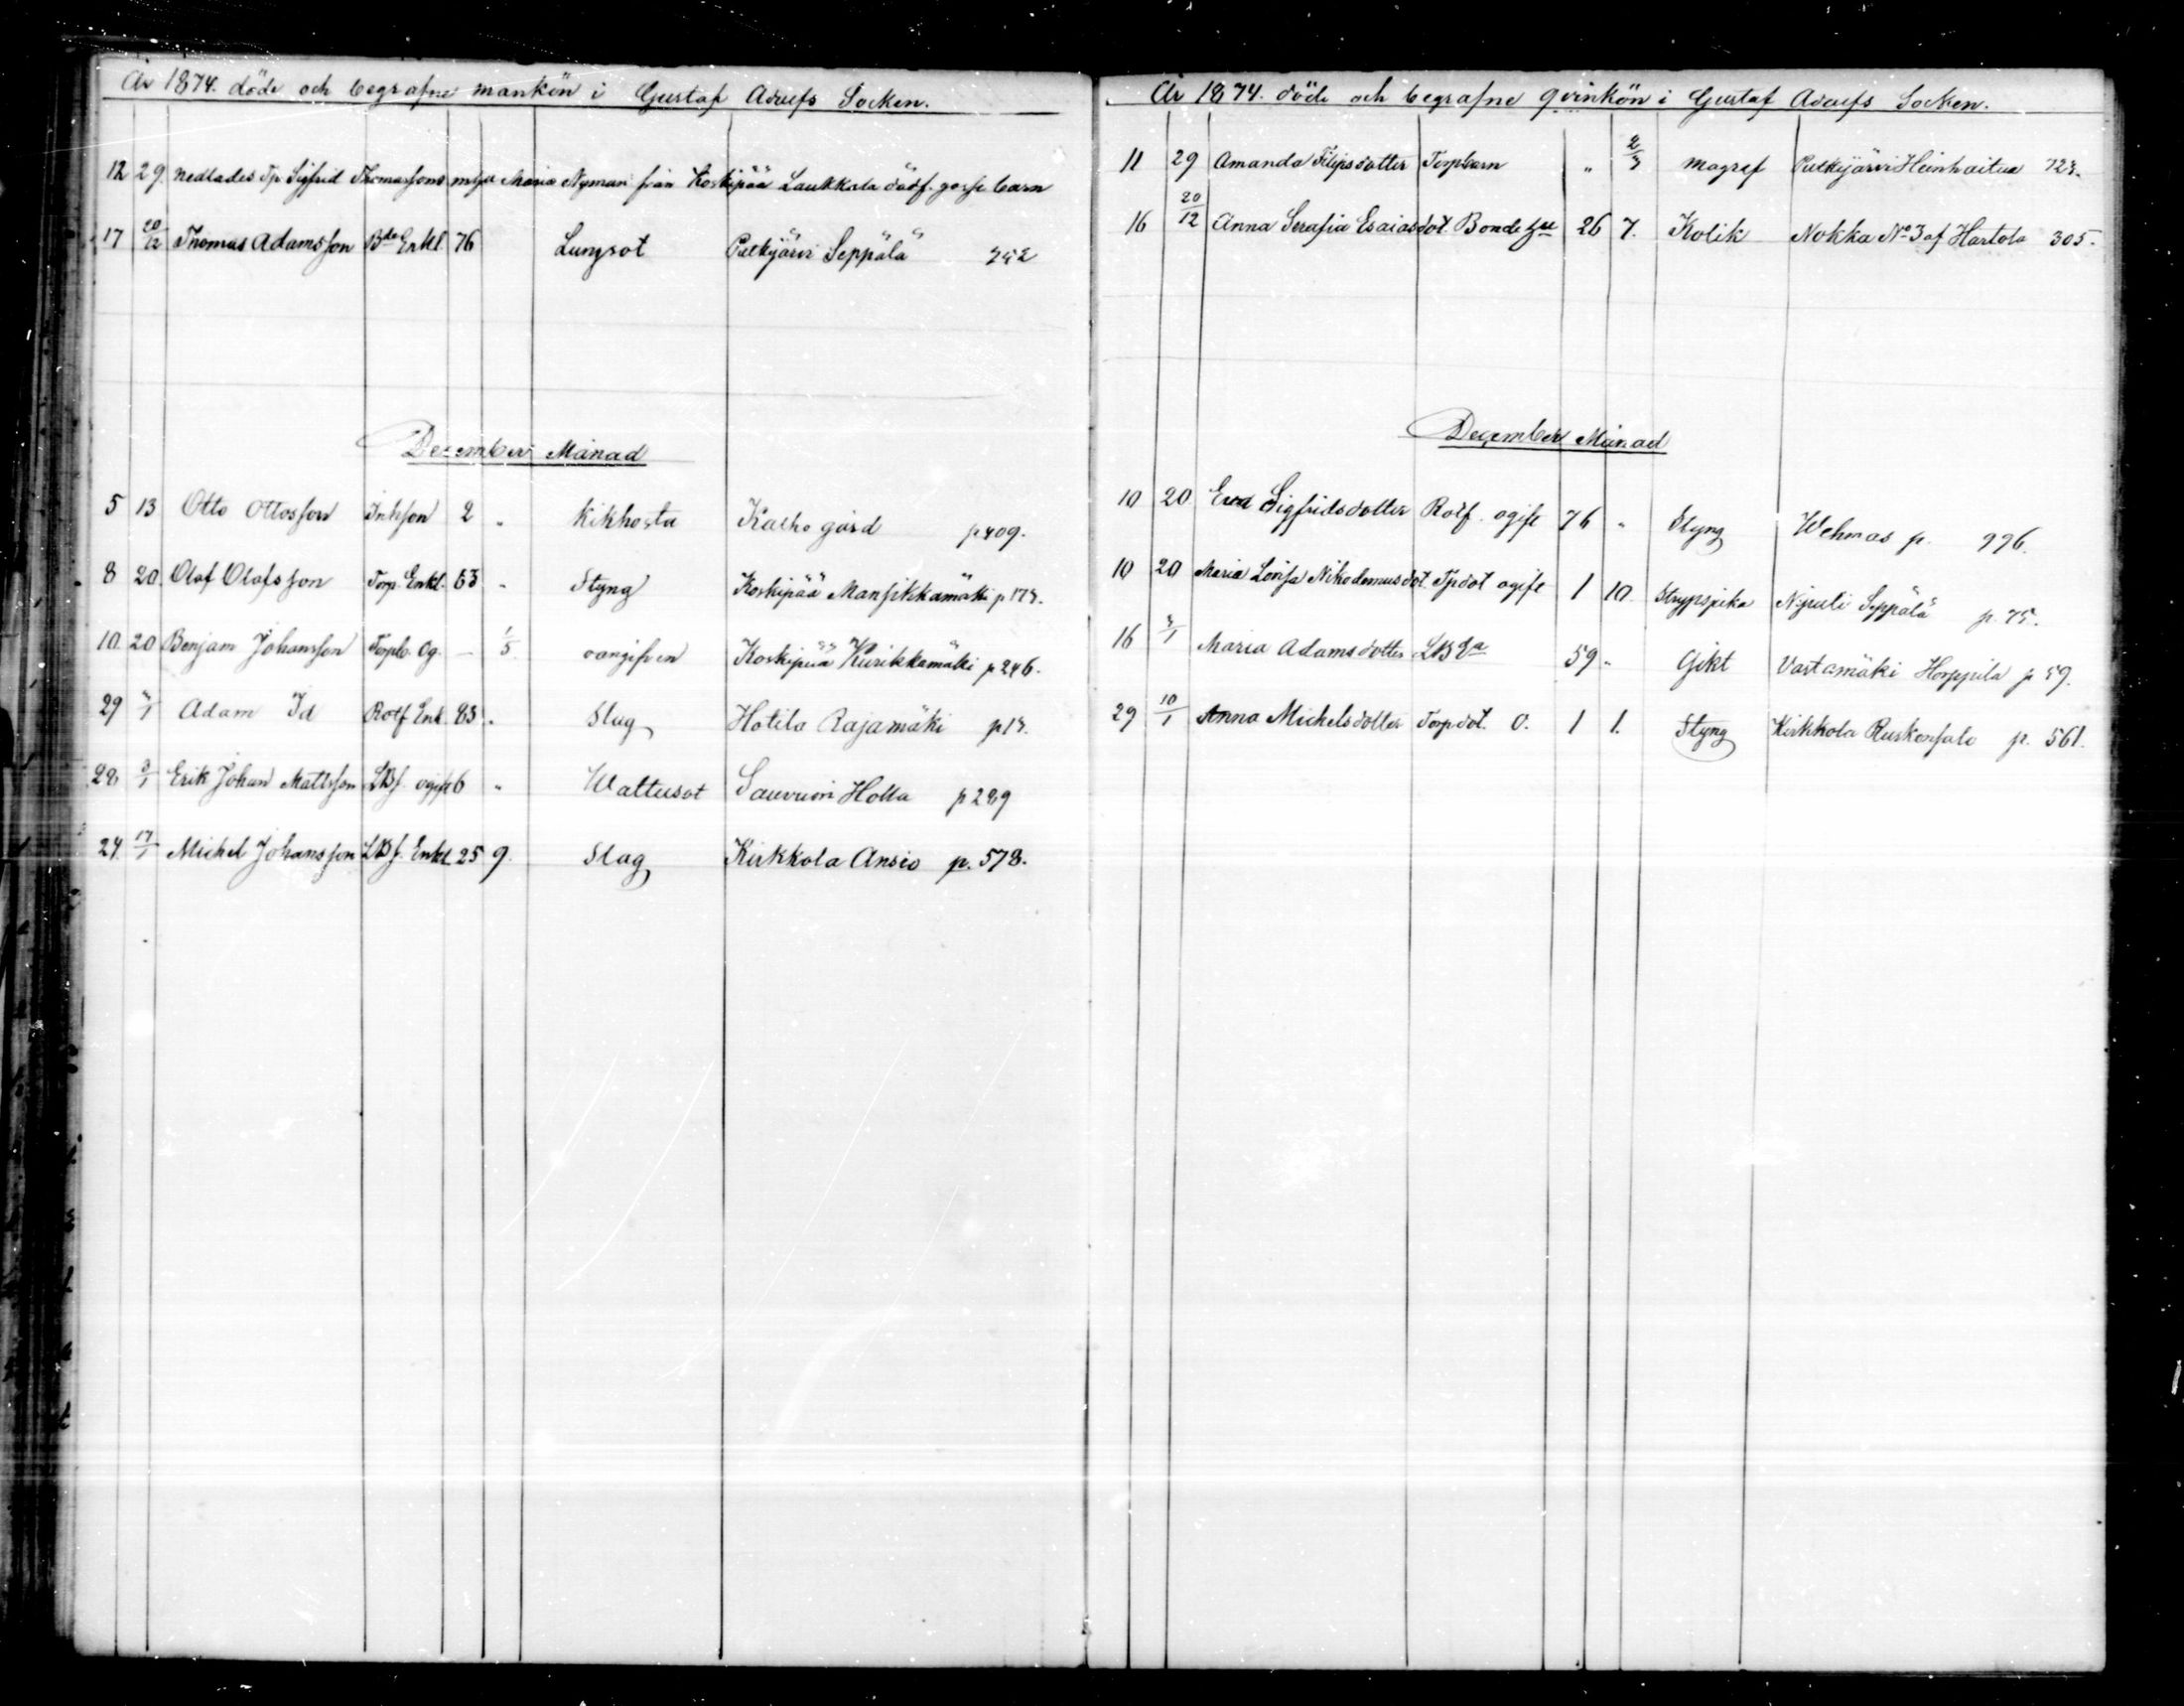 År 1874. döde och begrafne mankön i Gustaf Adolfs Socken.
12 29 nedlades Tp Sigfrid Thomassons Maria Nyman från Koskipää Laukkala dödf. gosse barn
17 20/12 Thomas Adamsson Bde Enkl. 76 Lungsot Pulkijärvi Seppälä
December Månad
5 13 Otto Ottosson Inhson 2 " Kikhosta Kalho gård p 409.
8 20. Olaf Olofsson Torp. Enkl. 63 " Styng Koskipää Mansikkamäki
10. 20 Benjam Johansson Torpb. Og. — 1/5 oangifven Koskipää Kurikkamäki p 246.
29 Adam Id Rotf Enk. 83 " Slag Hotila Rajamäki
28 3/1 Erik Johan Mattsson LBf. ogift 6 " Wattusot Hotta p 289
24. 17/1 Michel Johansson LBf. Enkl 25 9. Slag Kirkkola Ansio p. 578.
År 1874. döde och begrafne qvinkön i Gustaf Adolfs Socken.
11 29 Amanda Filipsdotter Torpbarn " magref Pulkijärvi Heinhaitua
16 20/12 Anna Serafia Esaiasdot. Bonde 26 7. Kolik Nokka No 3 af Hartola 305.
December Månad
10 20 Eva Sigfridsdotter Rotf. ogift 76 " Styng Wehmas p.
10 20 Maria Lovisa Nikodemusdot. Tpdot ogift 1 10 Strypsjuka Nipuli Seppälä p. 75.
16 Maria Adamsdotter LB 59 " Gikt Vastamäki Horppila p 59.
29 10/1 Anna Michelsdotter Torpdot. O. 1 1. Styng Kirkkola Ruskeasalo p. 561.